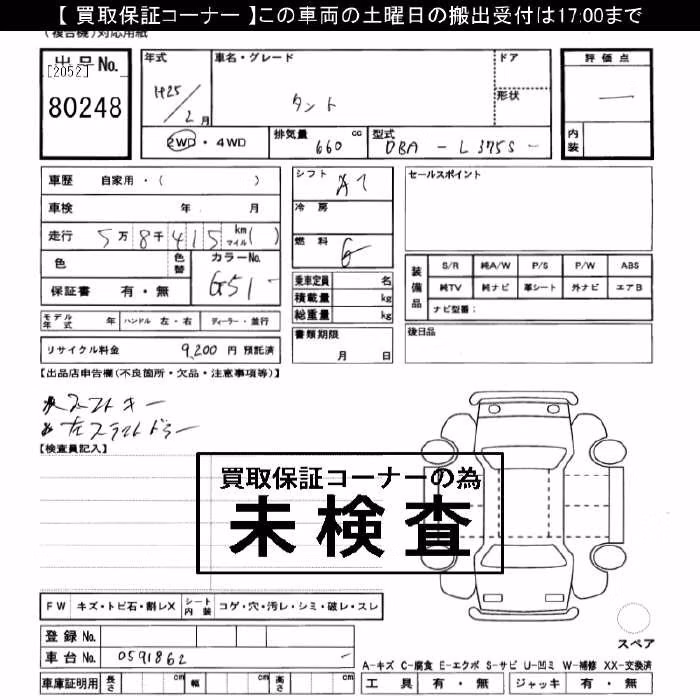 【 買取保証コーナー 】この車両の土曜日の搬出受付は17:00まで
(複合機)対応用紙
出品No.
[2052]
80248
年式
H25/2月
車名・グレード
タント
ドア
形状
評価点
—
内装
2WD・4WD
排気量 660 cc
型式 DBA - L375S -
車歴 自家用・( )
車検 年 月
走行 5万8千415 km マイル( )
色 色替
カラーNo. G51 -
保証書 有・無
シフト AT
冷房
燃料 G
乗車定員 名
積載量 kg
総重量 kg
セールスポイント
装備品
S/R 純A/W P/S P/W ABS
純TV 純ナビ 革シート 外ナビ エアB
ナビ型番:
モデル年式 年 ハンドル 左・右 ディーラー・並行
書類期限
月 日
後日品
リサイクル料金 9,200 円 預託済
【出品店申告欄(不良箇所・欠品・注意事項等)】
スマートキー
左スライドドアー
【検査員記入】
買取保証コーナーの為
未検査
FW キズ・トビ石・割レX シート内装 コゲ・穴・汚レ・シミ・破レ・スレ
登録No.
車台No. 0591862 -
車庫証明用 長さ cm 幅 cm 高さ cm
スペア
A-キズ C-腐食 E-エクボ S-サビ U-凹ミ W-補修 XX-交換済
工具 有・無 ジャッキ 有・無